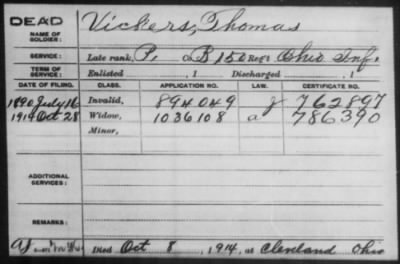 DEAD
NAME OF SOLDIER: Vickers, Thomas
SERVICE: Late rank, P. Co. B 150 Reg't Ohio Inf.
TERM OF SERVICE: Enlisted , 1 Discharged , 1
DATE OF FILING. CLASS. APPLICATION NO. LAW. CERTIFICATE NO.
1890 July 16 Invalid, 894049 J 762897
1914 Oct 28 Widow, 1036108 a 786390
Minor,
ADDITIONAL SERVICES:
REMARKS:
Died Oct 8, 1914, at Cleveland Ohio